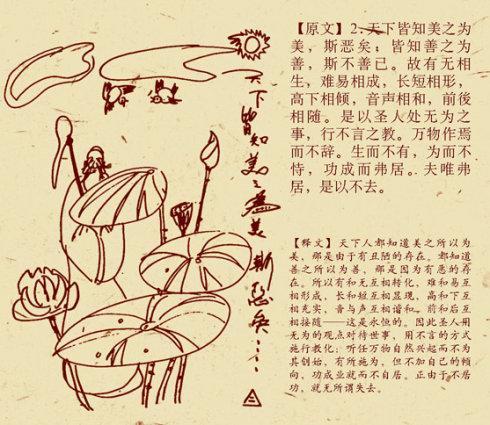 天下皆知美之為美
斯恶矣……
【原文】2.天下皆知美之为
美，斯恶矣；皆知善之为
善，斯不善已。故有无相
生，难易相成，长短相形，
高下相倾，音声相和，前後
相随。是以圣人处无为之
事，行不言之教。万物作焉
而不辞。生而不有，为而不
恃，功成而弗居。夫唯弗
居，是以不去。
【释文】天下人都知道美之所以为
美，那是由于有丑陋的存在。都知道
善之所以为善，那是因为有恶的存
在。所以有和无互相转化，难和易互
相形成，长和短互相显现，高和下互
相充实，音与声互相谐和，前和后互
相接随——这是永恒的。因此圣人用
无为的观点对待世事，用不言的方式
施行教化；听任万物自然兴起而不为
其创始，有所施为，但不加自己的倾
向，功成业就而不自居。正由于不居
功，就无所谓失去。